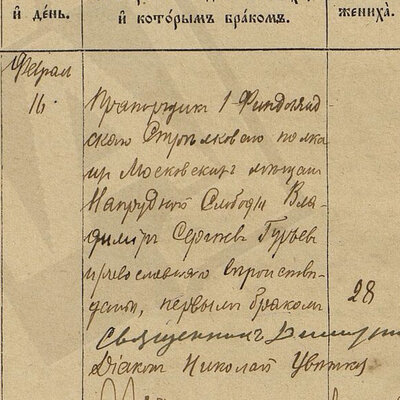 и҆ де́нь.
и҆ кото́рымъ бра́комъ.
жениха̀.
Феврал
16.
Прапорщик 1 Финлянд
скаго Стрѣлковаго полка
из Московских мещан
Напрудной Слободы Вла-
димір Сергеев Гурьев
православнаго вероиспове-
дания, первым браком
28
Священникъ Димитр
Діакон Николай Цветков